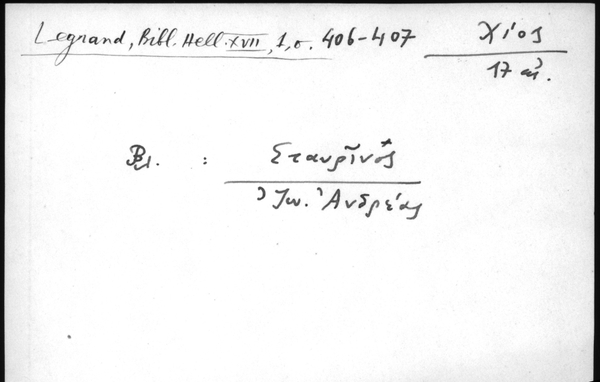 Legrand, Bibl. Hell. XVII, 1, σ. 406-407
Χίος
17 αἰ.
Βλ. : Σταυρῖνός
Ἰω. Ἀνδρέας